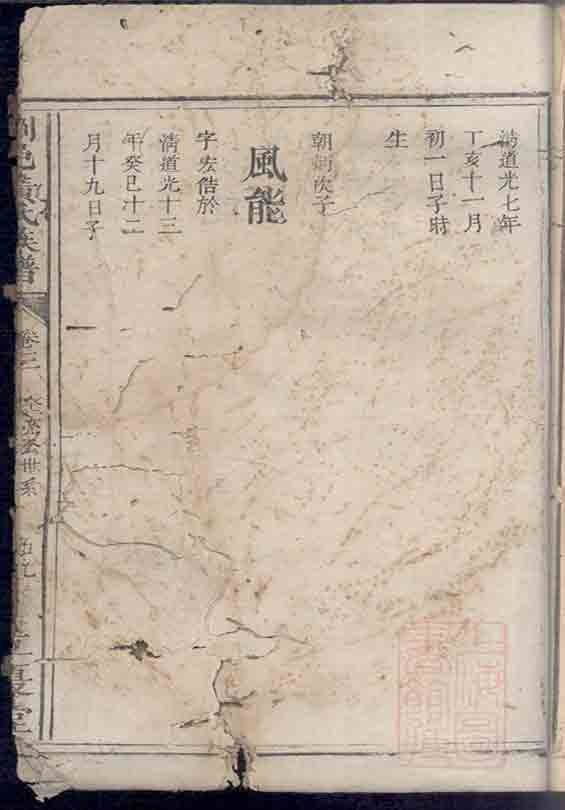 清道光七年
丁亥十一月
初一日子時
生
朝炯次子
風能
字宏偕於
清道光十三
年癸巳十二
月十九日子
邑黃氏族譜
卷三
世系